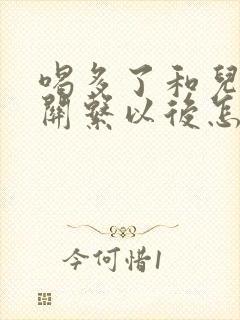 喝多了和兒
關繫以後怎
今何惜1